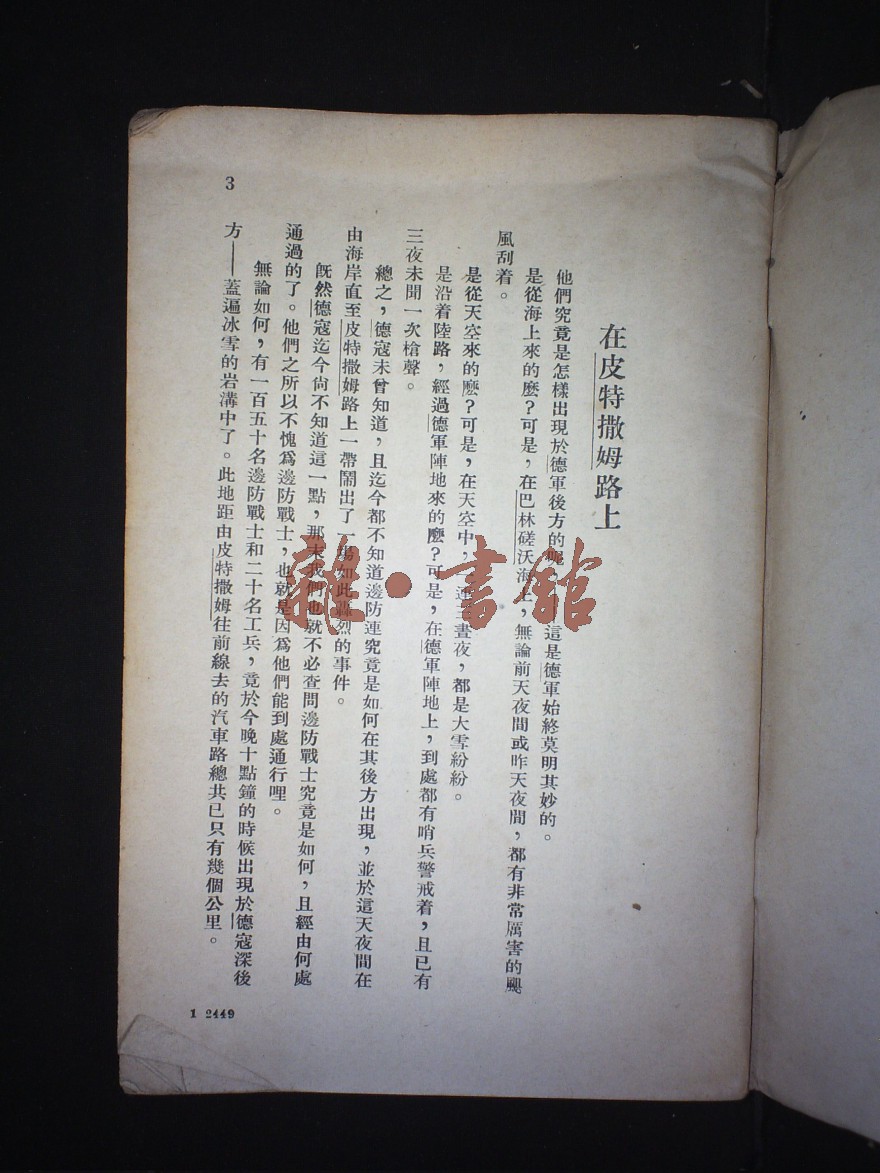 在皮特撒姆路上
他們究竟是怎樣出現於德軍後方的呢 這是德軍始終莫明其妙的。
是從海上來的麽？可是，在巴林磋沃海上，無論前天夜間或昨天夜間，都有非常厲害的颶
風刮着。
是從天空來的麽？可是，在天空中，連三晝夜，都是大雪紛紛。
是沿着陸路，經過德軍陣地來的麽？可是，在德軍陣地上，到處都有哨兵警戒着，且已有
三夜未聞一次槍聲。
總之，德寇未曾知道，且迄今都不知道邊防連究竟是如何在其後方出現，並於這天夜間在
由海岸直至皮特撒姆路上一帶鬧出了一場如此轟烈的事件。
旣然德寇迄今尙不知道這一點，那末我們也就不必查問邊防戰士究竟是如何，且經由何處
通過的了。他們之所以不愧爲邊防戰士，也就是因爲他們能到處通行哩。
無論如何，有一百五十名邊防戰士和二十名工兵，竟於今晚十點鐘的時候出現於德寇深後
方——蓋遍冰雪的岩溝中了。此地距由皮特撒姆往前線去的汽車路總共已只有幾個公里。
3
1 2449
雜·書館